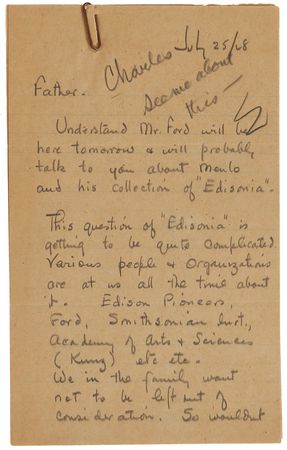 July 25/28
Charles
see me about
this —
Father.
Understand Mr. Ford will be
here tomorrow & will probably
talk to you about Menlo
and his collection of "Edisonia".
This question of "Edisonia" is
getting to be quite complicated.
Various people & Organizations
are at us all the time about
it. Edison Pioneers,
Ford, Smithsonian Inst.,
Academy of Arts & Sciences
(Kunz) etc etc.
We in the family want
not to be left out of
consideration. So wouldnt